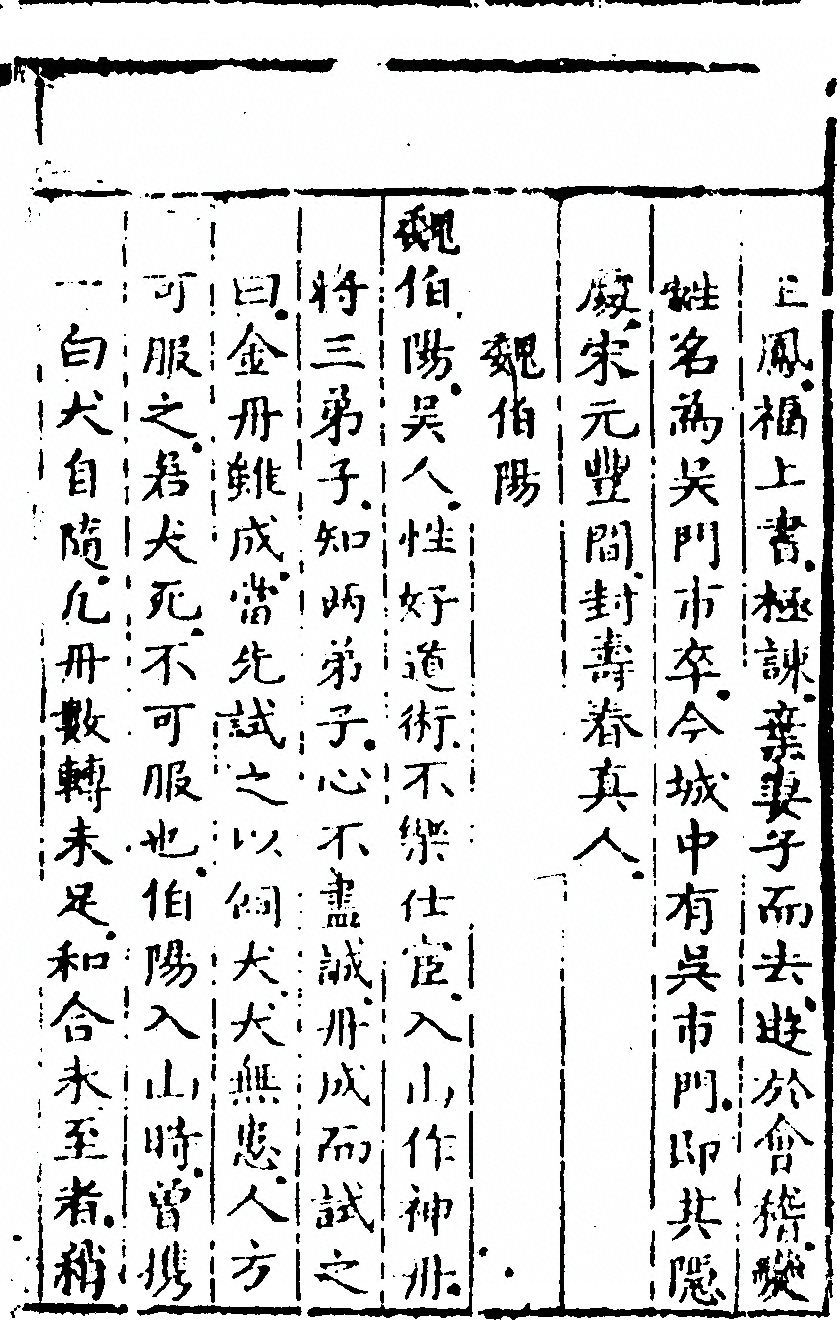 王鳳福上書極諫棄妻子而去遊於會稽變
姓名為吳門市卒今城中有吳市門即其隱
處宋元豐間封壽春真人
魏伯陽
魏伯陽吳人性好道術不樂仕宦入山作神丹
將三弟子知兩弟子心不盡誠丹成而試之
曰金丹雖成當先試之以飼犬犬無患人方
可服之若犬死不可服也伯陽入山時曾携
一白犬自隨凡丹數轉未足和合未至者稍